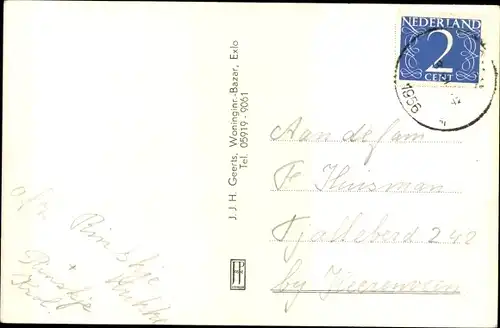 NEDERLAND
2
CENT
1956
J. J. H. Geerts, Woninginr.-Bazar, Exlo
Tel. 05919 - 9061
Aan de fam
Fe Huisman
Tjalleberd 242
by Heerenveen
afz
Rinskje
+